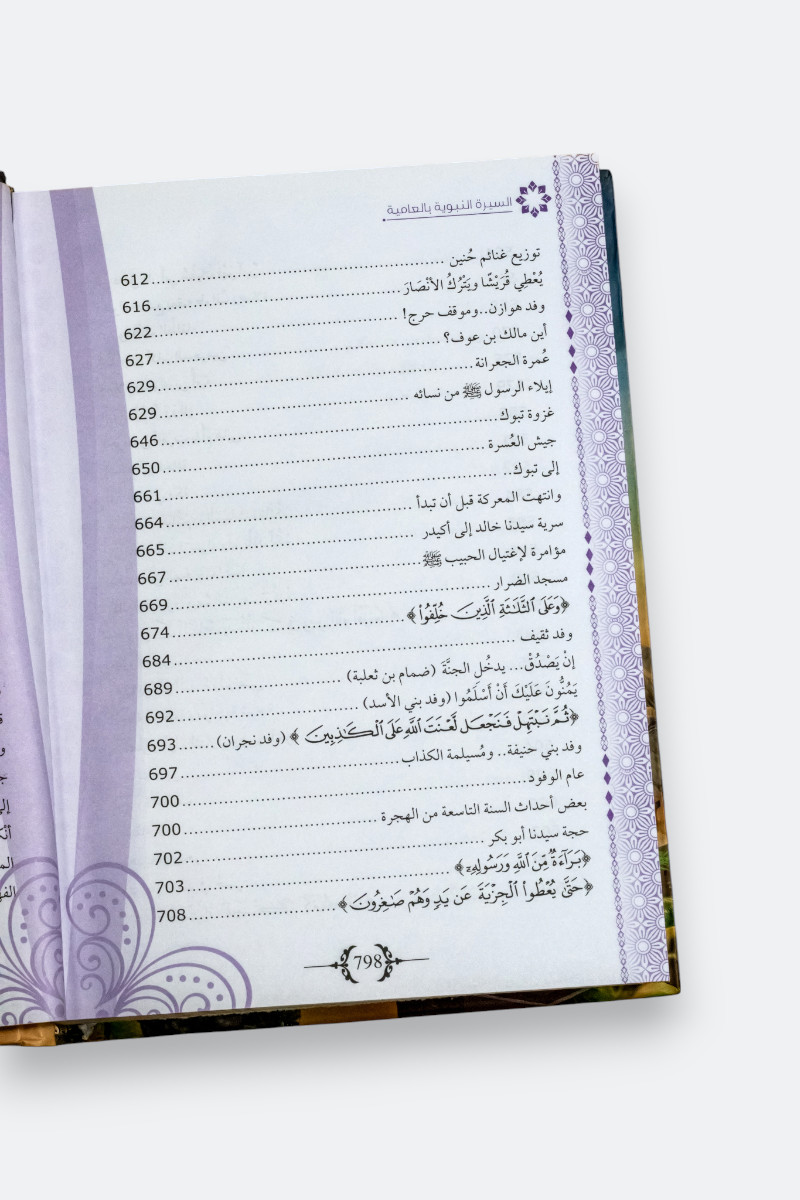 السيرة النبوية بالعامية
توزيع غنائم حُنين 612
يُعْطِي قُرَيْشًا ويَتْرُكُ الأنْصَارَ 616
وفد هوازن..وموقف حرج! 622
أين مالك بن عوف؟ 627
عُمرة الجعرانة 629
إيلاء الرسول ﷺ من نسائه 629
غزوة تبوك 646
جيش العُسرة 650
إلى تبوك.. 661
وانتهت المعركة قبل أن تبدأ 664
سرية سيدنا خالد إلى أكيدر 665
مؤامرة لإغتيال الحبيب ﷺ 667
مسجد الضرار 669
﴿وَعَلَى ٱلثَّلَـٰثَةِ ٱلَّذِينَ خُلِّفُوا۟﴾ 674
وفد ثقيف 684
إنْ يَصْدُقْ... يدخُلِ الجنَّةَ (ضمام بن ثعلبة) 689
يَمُنُّونَ عَلَيْكَ أَنْ أَسْلَمُوا (وفد بني الأسد) 692
﴿ثُمَّ نَبْتَهِلْ فَنَجْعَل لَّعْنَتَ ٱللَّهِ عَلَى ٱلْكَـٰذِبِينَ﴾ (وفد نجران) 693
وفد بني حنيفة.. ومُسيلمة الكذاب 697
عام الوفود 700
بعض أحداث السنة التاسعة من الهجرة 700
حجة سيدنا أبو بكر 702
﴿بَرَآءَةٌ مِّنَ ٱللَّهِ وَرَسُولِهِۦ﴾ 703
﴿حَتَّىٰ يُعْطُوا۟ ٱلْجِزْيَةَ عَن يَدٍ وَهُمْ صَـٰغِرُونَ﴾ 708
798